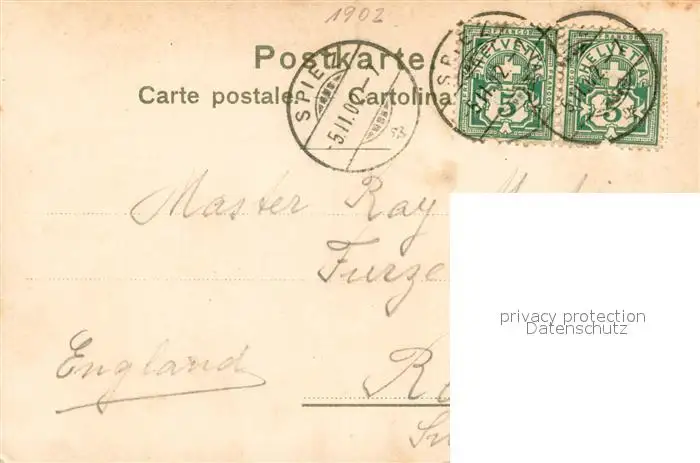 1902
Postkarte.
Carte postale. Cartolina
SPIEZ
-5.II.02.-7
SPIEZ
HELVETIA
FRANCO
5
HELVETIA
FRANCO
5
Master Ray
Furze
England
privacy protection
Datenschutz